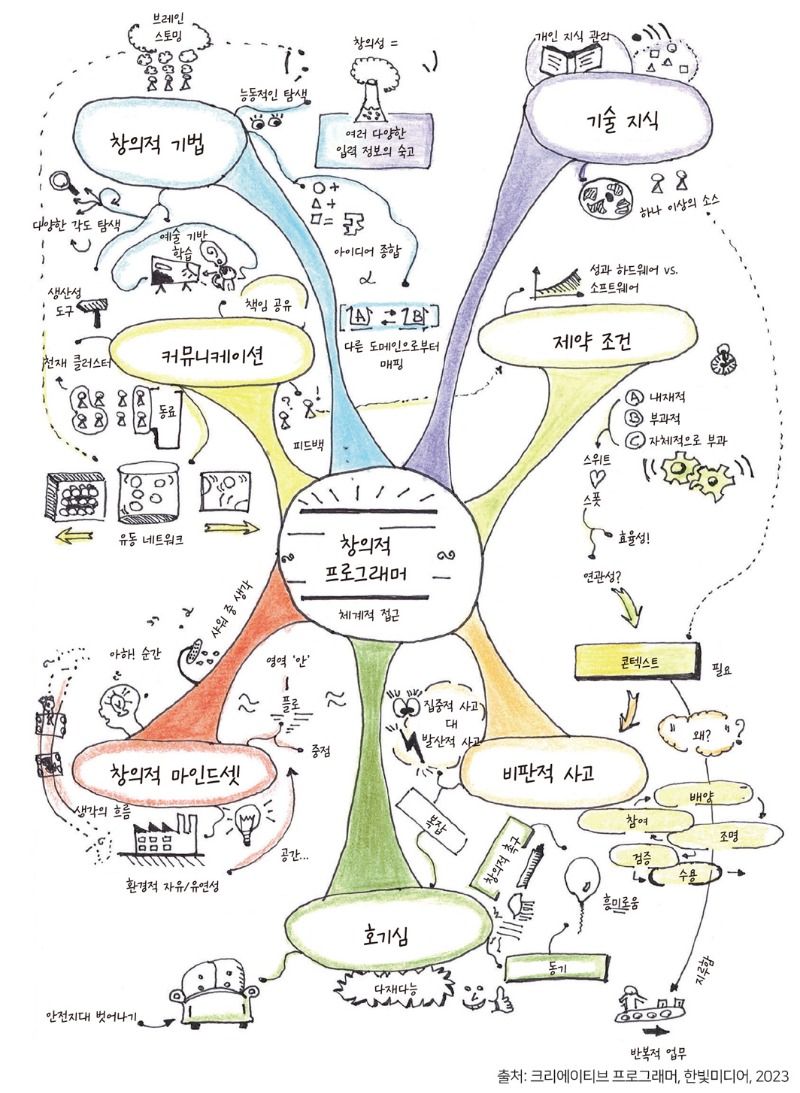 브레인
스토밍
창의성 =
개인 지식 관리
능동적인 탐색
창의적 기법
여러 다양한
입력 정보의 숙고
기술 지식
하나 이상의 소스
다양한 각도 탐색
예술 기반
학습
아이디어 종합
생산성
도구
책임 공유
A
B
다른 도메인으로부터
매핑
성과 하드웨어 vs.
소프트웨어
커뮤니케이션
제약 조건
천재 클러스터
동료
피드백
A 내재적
B 부과적
C 자체적으로 부과
스위트
스폿
유동 네트워크
효율성!
연관성?
창의적
프로그래머
체계적 접근
샤워 중 생각
아하! 순간
영역 '안'
플로
중점
콘텍스트
필요
집중적 사고
대
발산적 사고
왜?
창의적 마인드셋
비판적 사고
생각의 흐름
배양
참여
조명
검증
수용
환경적 자유/유연성
공간...
창의적 촉구
흥미로움
호기심
동기
다재다능
지루함
안전지대 벗어나기
반복적 업무
출처: 크리에이티브 프로그래머, 한빛미디어, 2023